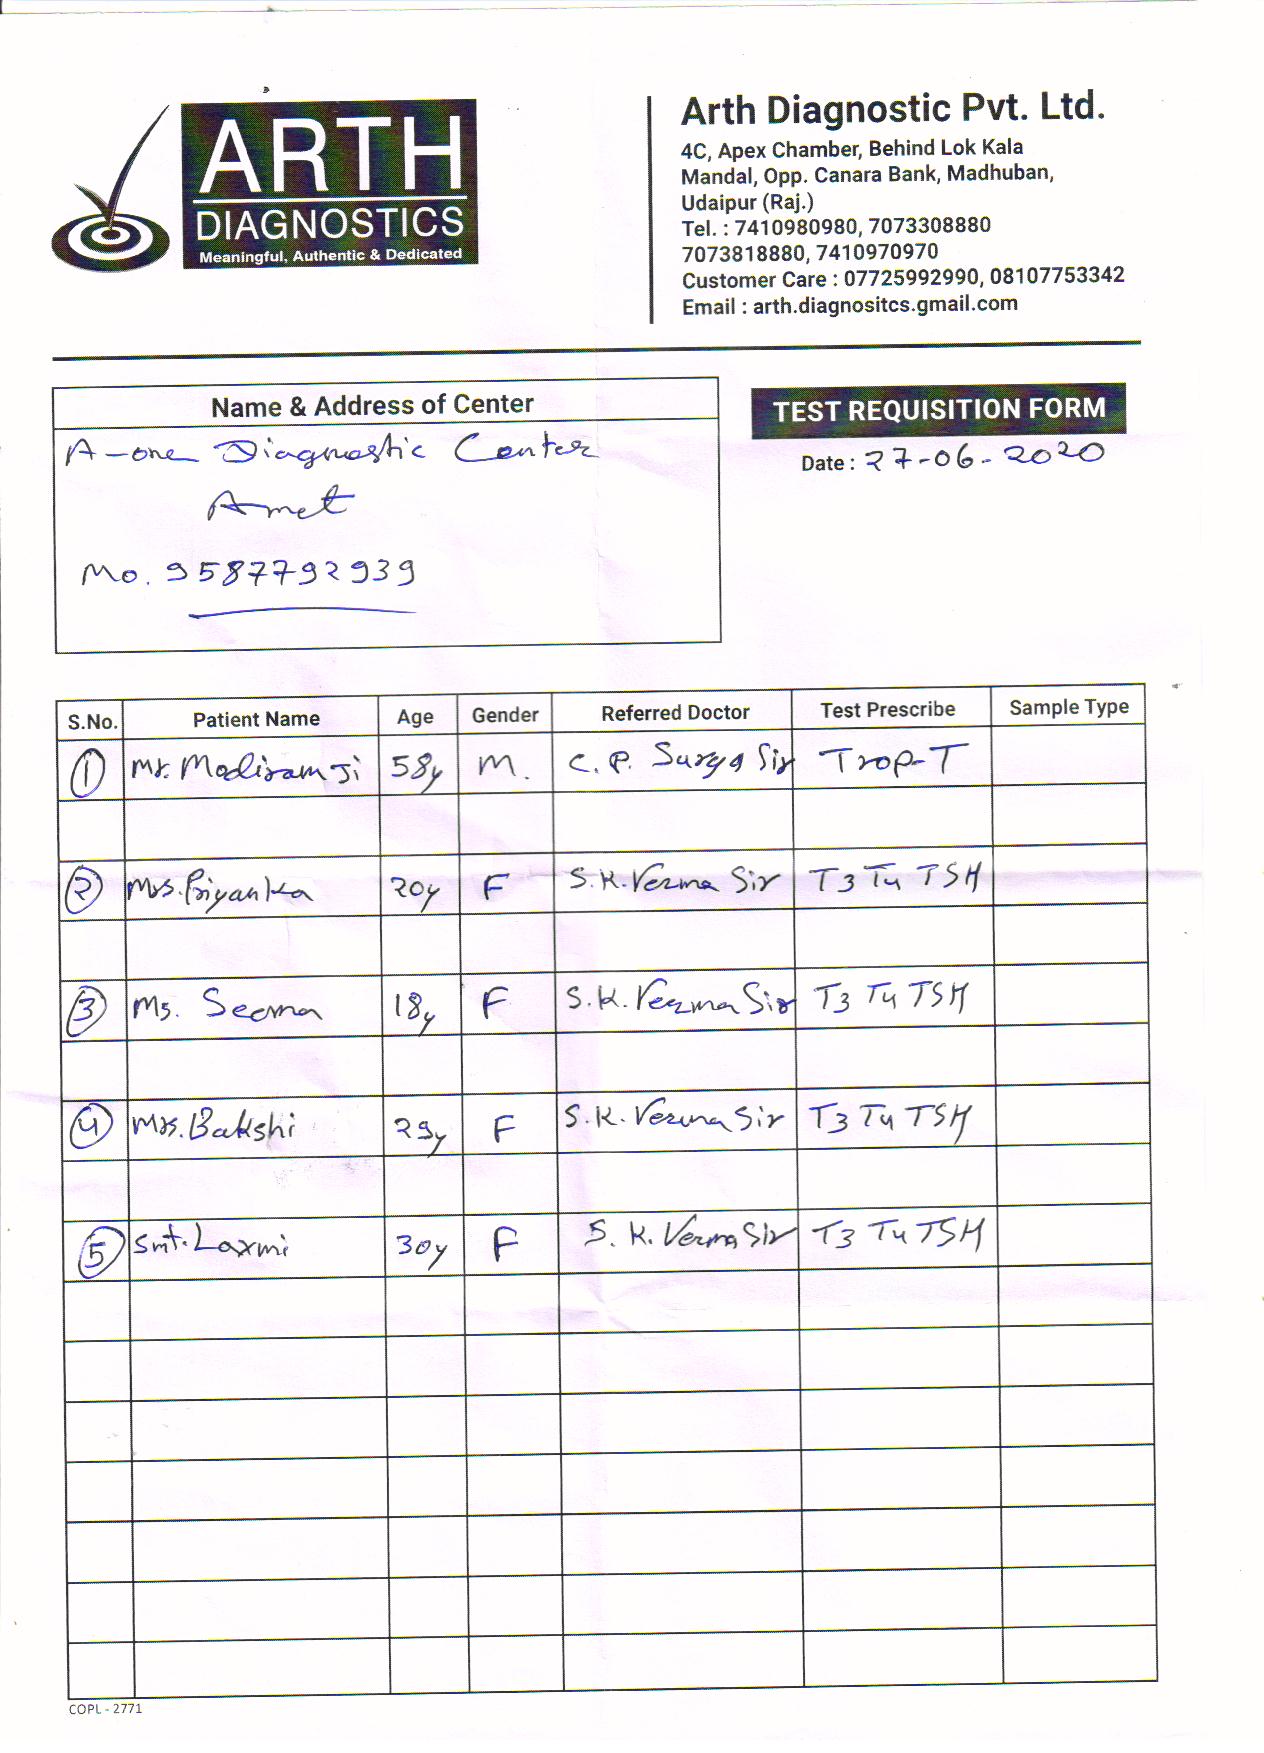 ARTH
DIAGNOSTICS
Meaningful, Authentic & Dedicated
Arth Diagnostic Pvt. Ltd.
4C, Apex Chamber, Behind Lok Kala
Mandal, Opp. Canara Bank, Madhuban,
Udaipur (Raj.)
Tel. : 7410980980, 7073308880
7073818880, 7410970970
Customer Care : 07725992990, 08107753342
Email : arth.diagnositcs.gmail.com
Name & Address of Center
A-one Diagnostic Center
Amet
Mo. 9587792939
TEST REQUISITION FORM
Date : 27-06-2020
S.No. Patient Name Age Gender Referred Doctor Test Prescribe Sample Type
1 Mr. Modiram Ji 58y M. C. P. Surya Sir Trop-T
2 Mrs. Priyanka 20y F S.K. Verma Sir T3 T4 TSH
3 Ms. Seema 18y F S.K. Verma Sir T3 T4 TSH
4 Mrs. Bakshi 29y F S.K. Verma Sir T3 T4 TSH
5 Smt. Laxmi 30y F S. K. Verma Sir T3 T4 TSH
COPL - 2771